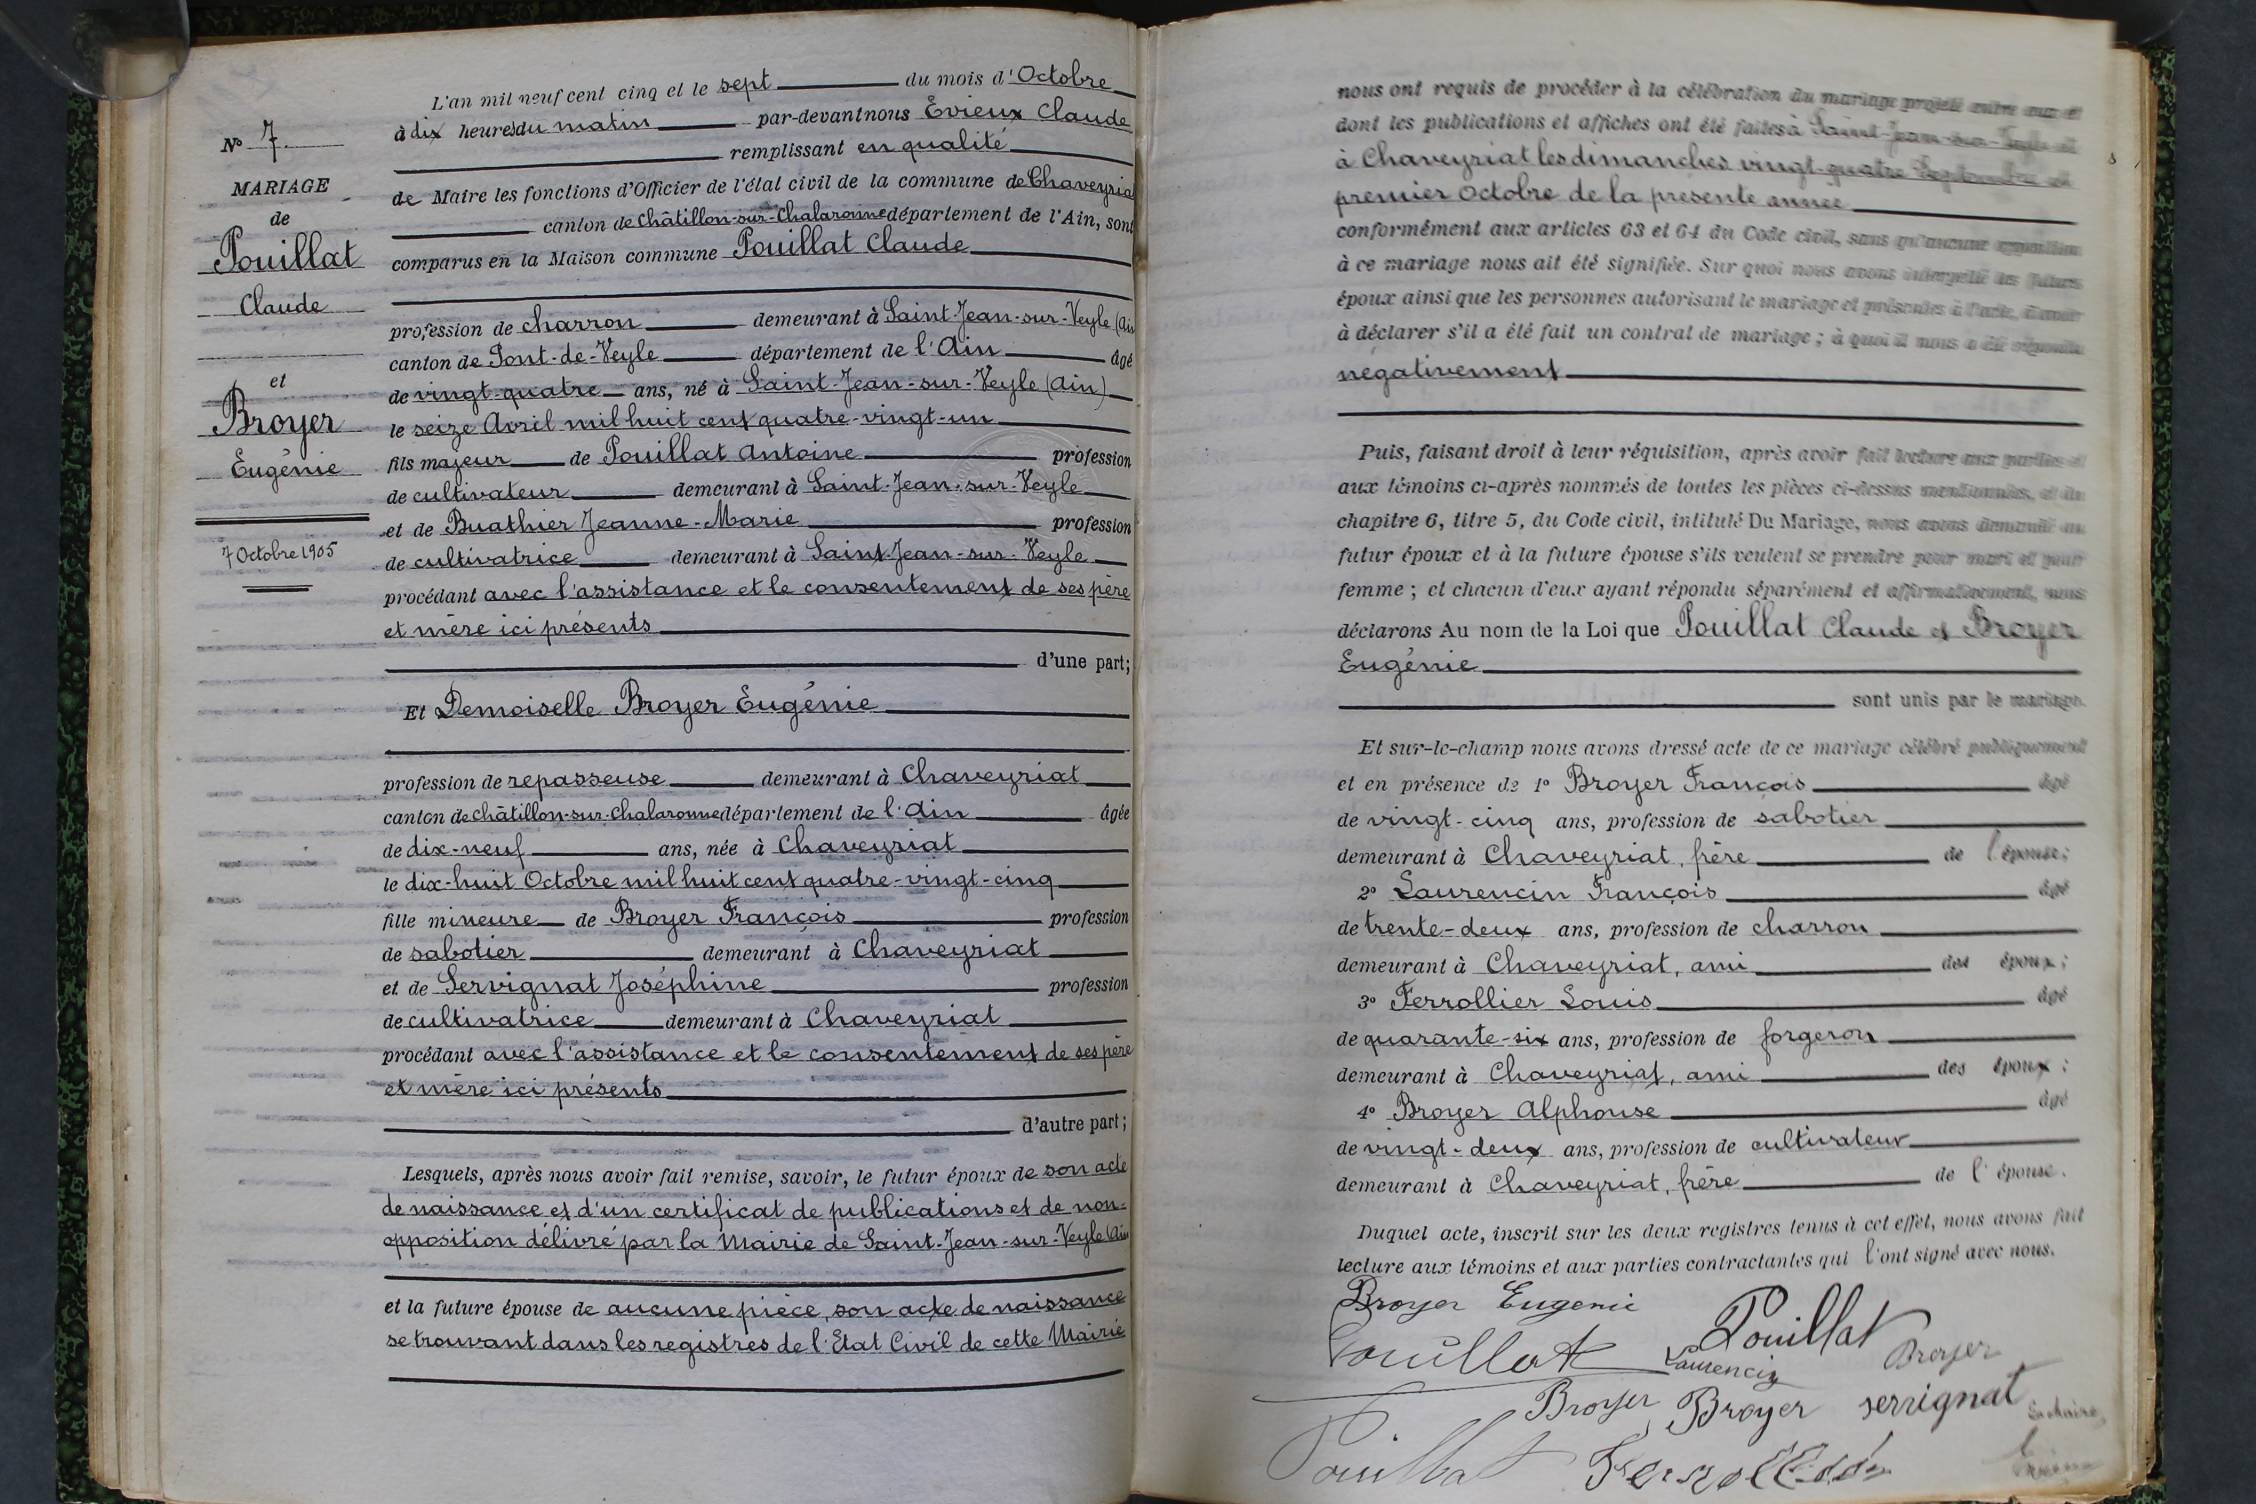 N° 7.
MARIAGE
de
Pouillat
Claude
et
Broyer
Eugénie
7 Octobre 1905
L'an mil neuf cent cinq et le sept du mois d'Octobre
à dix heures du matin par-devant nous Evieux Claude
remplissant en qualité
de Maire les fonctions d'Officier de l'état civil de la commune de Chaveyriat
canton de Châtillon-sur-Chalaronne département de l'Ain, sont
comparus en la Maison commune Pouillat Claude
profession de charron demeurant à Saint-Jean-sur-Veyle (Ain
canton de Pont-de-Veyle département de l'Ain âgé
de vingt-quatre ans, né à Saint-Jean-sur-Veyle (Ain)
le seize Avril mil huit cent quatre-vingt-un
fils majeur de Pouillat Antoine profession
de cultivateur demeurant à Saint-Jean-sur-Veyle
et de Buathier Jeanne-Marie profession
de cultivatrice demeurant à Saint-Jean-sur-Veyle
procédant avec l'assistance et le consentement de ses père
et mère ici présents
d'une part;
Et Demoiselle Broyer Eugénie
profession de repasseuse demeurant à Chaveyriat
canton de Châtillon-sur-Chalaronne département de l'Ain âgée
de dix-neuf ans, née à Chaveyriat
le dix-huit Octobre mil huit cent quatre-vingt-cinq
fille mineure de Broyer François profession
de sabotier demeurant à Chaveyriat
et de Servignat Joséphine profession
de cultivatrice demeurant à Chaveyriat
procédant avec l'assistance et le consentement de ses père
et mère ici présents
d'autre part;
Lesquels, après nous avoir fait remise, savoir, le futur époux de son acte
de naissance et d'un certificat de publications et de non-
opposition délivré par la Mairie de Saint-Jean-sur-Veyle (Ain
et la future épouse de aucune pièce, son acte de naissance
se trouvant dans les registres de l'Etat Civil de cette Mairie
nous ont requis de procéder à la célébration du mariage projeté entre eux et
dont les publications et affiches ont été faites à Saint-Jean-sur-Veyle et
à Chaveyriat les dimanches vingt-quatre Septembre et
premier Octobre de la présente année
conformément aux articles 63 et 64 du Code civil, sans qu'aucune opposition
à ce mariage nous ait été signifiée. Sur quoi nous avons interpellé les futurs
époux ainsi que les personnes autorisant le mariage et présentes à l'acte, d'avoir
à déclarer s'il a été fait un contrat de mariage; à quoi il nous a été répondu
négativement
Puis, faisant droit à leur réquisition, après avoir fait lecture aux parties et
aux témoins ci-après nommés de toutes les pièces ci-dessus mentionnées, et du
chapitre 6, titre 5, du Code civil, intitulé Du Mariage, nous avons demandé au
futur époux et à la future épouse s'ils veulent se prendre pour mari et pour
femme; et chacun d'eux ayant répondu séparément et affirmativement, nous
déclarons Au nom de la Loi que Pouillat Claude et Broyer
Eugénie
sont unis par le mariage.
Et sur-le-champ nous avons dressé acte de ce mariage célébré publiquement
et en présence de 1° Broyer François âgé
de vingt-cinq ans, profession de sabotier
demeurant à Chaveyriat, frère de l'épouse;
2° Laurencin François âgé
de trente-deux ans, profession de charron
demeurant à Chaveyriat, ami des époux;
3° Ferrollier Louis âgé
de quarante-six ans, profession de forgeron
demeurant à Chaveyriat, ami des époux;
4° Broyer Alphonse âgé
de vingt-deux ans, profession de cultivateur
demeurant à Chaveyriat, frère de l'épouse.
Duquel acte, inscrit sur les deux registres tenus à cet effet, nous avons fait
lecture aux témoins et aux parties contractantes qui l'ont signé avec nous.
Broyer Eugenie
Pouillat
Pouillat
Laurencin
Broyer
Broyer
Broyer
serrignat
Pouillat